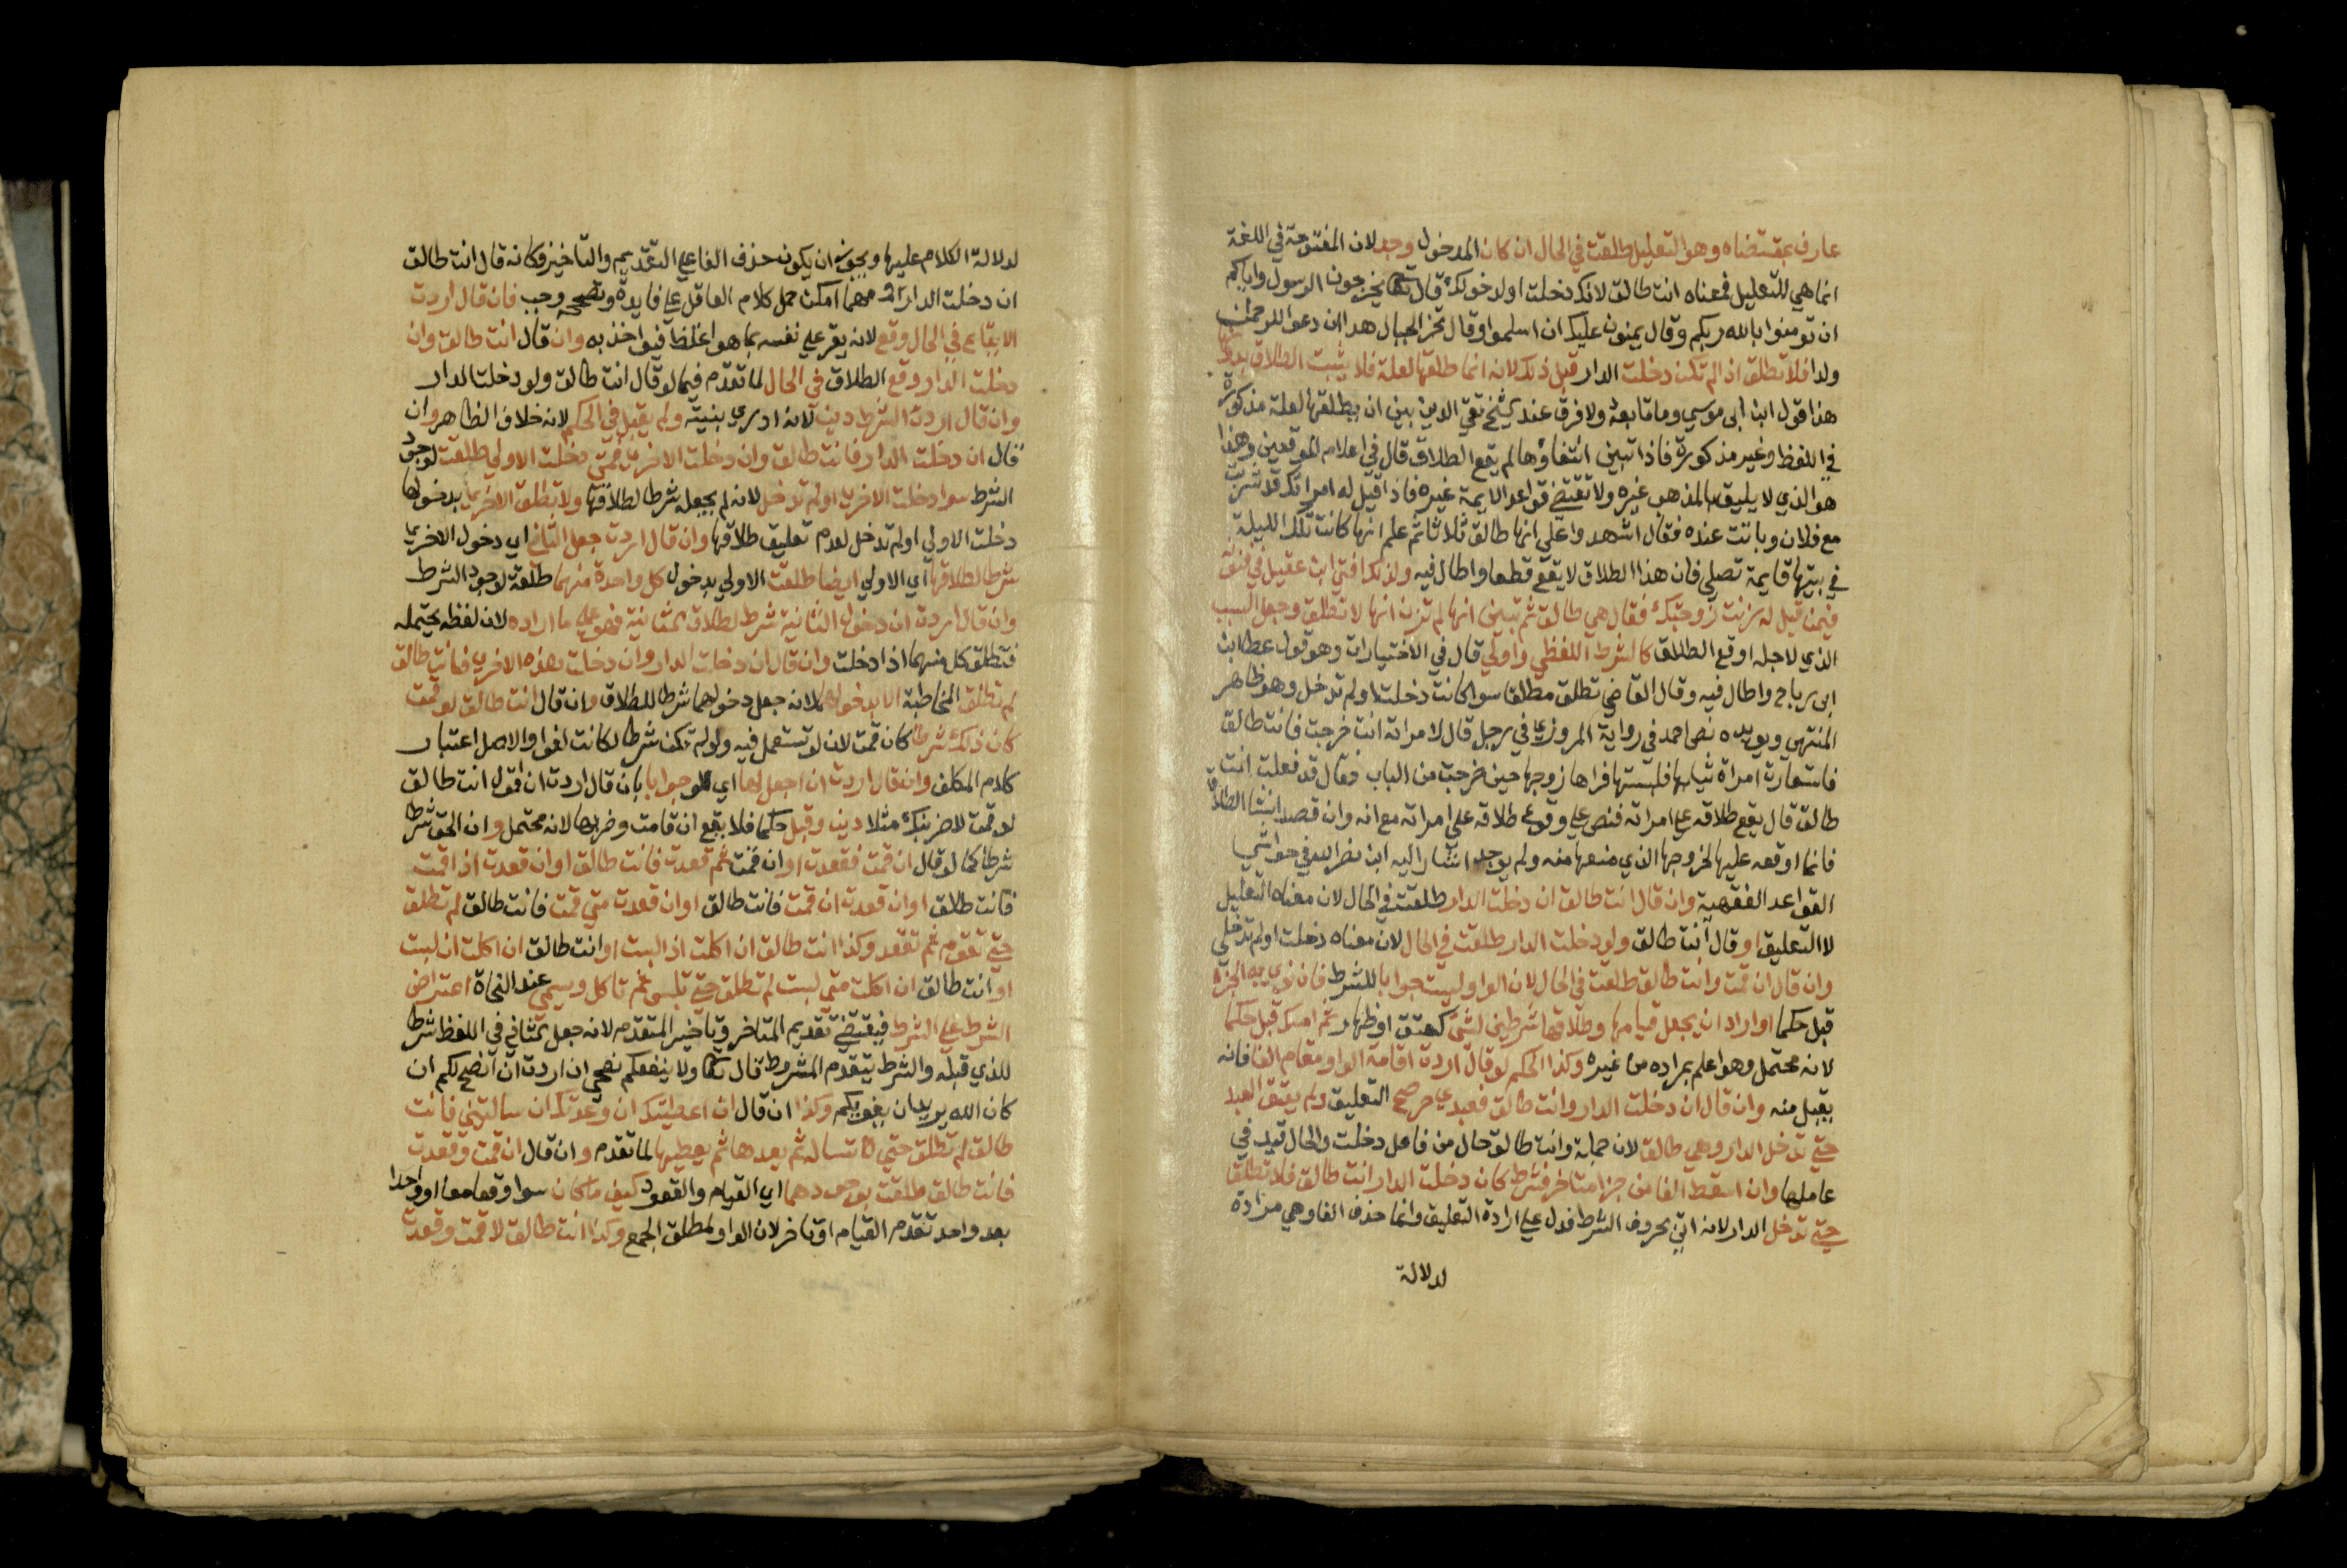 عارف بمقتضاه وهو التعليل طلقت في الحال ان كان المدخول وجد لان المفتوحة في اللغة
انما هي للتعليل فمعناه انت طالق لانك دخلت او لدخولك قال تعالى يخرجون الرسول واياكم
ان تومنوا بالله ربكم وقال يمنون عليك ان اسلموا وقال تخر الجبال هدا ان دعوا للرحمن
ولدا فلا تطلق اذا لم تكن دخلت الدار قبل ذلك لانه انما طلقها لعلة فلا يثبت الطلاق بدونها
هذا قول ابن ابى موسي وما تابعه ولا فرق عند الشيخ تقي الدين بين ان يطلقها لعلة مذكورة
في اللفظ او غير مذكورة فاذا تبين انتفاؤها لم يقع الطلاق قال في اعلام الموقعين وهذا
هو الذي لا يليق بالمذهب غيره ولا تقتضي قواعد الايمة غيره فاذا قيل له امراتك قد شربت
مع فلان وباتت عنده فقال اشهدوا علي انها طالق ثلاثا ثم علم انها كانت تلك الليلة
في بيتها قايمة تصلي فان هذا الطلاق لا يقع قطعا واطال فيه ولذلك افتى ابن عقيل في فنونه
فيمن قيل له زنت زوجتك فقال هي طالق ثم تبين انها لم تزن انها لا تطلق وجعل السبب
الذي لاجله اوقع الطلاق كالشرط اللفظي واولي قال في الاختيارات وهو قول عطا ابن
ابى رباح واطال فيه وقال القاضي تطلق مطلقا سوا كانت دخلت او لم تدخل وهو ظاهر
المنتهى ويويده نص احمد في رواية المروزي في رجل قال لامراته انت خرجت فانت طالق
فاستعارت امراة ثيابها فلبستها فراها زوجها حين خرجت من الباب فقال قد فعلت انت
طالق قال يقع طلاقه علي امراته فنص علي وقوع طلاقه علي امراته مع انه وان قصد انشا الطلاق
فانما اوقعه عليها لخروجها الذي منعها منه ولم يوجد اشار اليه ابن نصر الله في حواشي
القواعد الفقهية وان قال انت طالق ان دخلت الدار طلقت في الحال لان معناه التعليل
لا التعليق او قال انت طالق ولو دخلت الدار طلقت في الحال لان معناه دخلت او لم تدخلي
وان قال ان قمت وانت طالق طلقت في الحال لان الواو ليست جوابا للشرط فان نوى به الجزا
قبل حكما او اراد ان يجعل قيامها وطلاقها شرطين لشي كعتق او ظهار ثم امسك قبل حكما
لانه محتمل وهو اعلم بمراده من غيره وكذا الحكم لو قال اردت اقامة الواو مقام الفا فانه
يقبل منه وان قال ان دخلت الدار وانت طالق فعبدي حر صح التعليق ولم يعتق العبد
حتى تدخل الدار وهي طالق لان جملة وانت طالق حال من فاعل دخلت والحال قيد في
عاملها وان اسقط الفا من جزا متاخر فشرط كان دخلت الدار انت طالق فلا تطلق
حتى تدخل الدار لانه اتى بحروف الشرط فدل علي ارادة التعليق وانما حذف الفا وهي مرادة
لدلالة
لدلالة الكلام عليها ويجوز ان يكون حذف الفا علي التقديم والتاخير فكانه قال انت طالق
ان دخلت الدار مهما امكن حمل كلام العاقل علي فايدة وتصحيحه وجب فان قال اردت
الايقاع في الحال وقع لانه يقر علي نفسه بما هو اغلظ فيواخذ به وان قال انت طالق وان
دخلت الدار وقع الطلاق في الحال لما تقدم فيما لو قال انت طالق ولو دخلت الدار
وان قال اردت الشرط دين لانه ادرى بنيته ولم يقبل في الحكم لانه خلاف الظاهر وان
قال ان دخلت الدار فانت طالق وان دخلت الاخرى فمتى دخلت الاولي طلقت لوجود
الشرط سوا دخلت الاخرى او لم تدخل لانه لم يجعله شرطا لطلاقها ولا تطلق الاخرى بدخولها
دخلت الاولي او لم تدخل لعدم تعليق طلاقها وان قال اردت جعل الثاني اي دخول الاخرى
شرطا لطلاقها اي الاولي ايضا طلقت الاولي بدخول كل واحدة منهما طلقة لوجود الشرط
وان قال اردت ان دخول الثانية شرط لطلاق الثانية فهو علي ما اراده لان لفظه يحتمله
فتطلق كل منهما اذا دخلت وان قال ان دخلت الدار وان دخلت هذه الاخرى فانت طالق
لم تطلق المخاطبة الا بدخولهما لانه جعل دخولهما شرطا للطلاق وان قال انت طالق لو قمت
كان ذلك شرطا كان قمت لان لو تستعمل فيه ولو لم تكن شرطا لكانت لغوا والاصل اعتبار
كلام المكلف وان قال اردت ان اجعل لها اي للو جوابا بان قال اردت ان اقول انت طالق
لو قمت لاضربنك مثلا دين وقبل حكما فلا يقع ان قامت وضربها لانه محتمل وان الحق شرط
شرطا كما لو قال ان قمت فقعدت او ان قمت ثم قعدت فانت طالق او ان قعدت اذا قمت
فانت طلاق او ان قعدت ان قمت فانت طالق او ان قعدت متى قمت فانت طالق لم تطلق
حتى تقوم ثم تقعد وكذا انت طالق ان اكلت اذا لبست او انت طالق ان اكلت ان لبست
او انت طالق ان اكلت متى لبست لم تطلق حتى تلبس ثم تاكل ويسمى عند النحاة اعتراض
الشرط علي الشرط فيقتضي تقديم المتاخر وتاخير المتقدم لانه جعل الثاني في اللفظ شرطا
للذي قبله والشرط يتقدم المشروط قال تعالى ولا ينفعكم نصحي ان اردت ان انصح لكم ان
كان الله يريد ان يغويكم وكذا ان قال ان اعطيتك ان وعدتك ان سالتني فانت
طالق لم تطلق حتى تساله ثم يعدها ثم يعطيها لما تقدم وان قال ان قمت وقعدت
فانت طالق طلقت بوجودهما اي القيام والقعود كيف ما كان سوا وقعا معا او واحدا
بعد واحد تقدم القيام او تاخر لان الواو لمطلق الجمع وكذا انت طالق لا قمت وقعدت